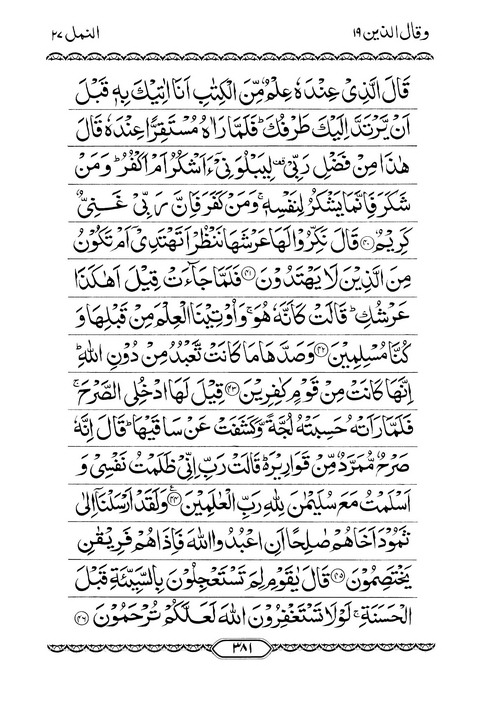 وقال الذین ۱۹ النمل ۲۷
قَالَ الَّذِیْ عِنْدَهٗ عِلْمٌ مِّنَ الْكِتٰبِ اَنَا اٰتِیْكَ بِهٖ قَبْلَ
اَنْ یَّرْتَدَّ اِلَیْكَ طَرْفُكَ ؕ فَلَمَّا رَاٰهُ مُسْتَقِرًّا عِنْدَهٗ قَالَ
هٰذَا مِنْ فَضْلِ رَبِّیْ ۫ۖ لِیَبْلُوَنِیْۤ ءَاَشْكُرُ اَمْ اَكْفُرُ ؕ وَمَنْ
شَكَرَ فَاِنَّمَا یَشْكُرُ لِنَفْسِهٖ ۚ وَمَنْ كَفَرَ فَاِنَّ رَبِّیْ غَنِیٌّ
كَرِیْمٌ ﴿۴۰﴾ قَالَ نَكِّرُوْا لَهَا عَرْشَهَا نَنْظُرْ اَتَهْتَدِیْۤ اَمْ تَكُوْنُ
مِنَ الَّذِیْنَ لَا یَهْتَدُوْنَ ﴿۴۱﴾ فَلَمَّا جَآءَتْ قِیْلَ اَهٰكَذَا
عَرْشُكِ ؕ قَالَتْ كَاَنَّهٗ هُوَ ۚ وَاُوْتِیْنَا الْعِلْمَ مِنْ قَبْلِهَا وَ
كُنَّا مُسْلِمِیْنَ ﴿۴۲﴾ وَصَدَّهَا مَا كَانَتْ تَّعْبُدُ مِنْ دُوْنِ اللّٰهِ ؕ
اِنَّهَا كَانَتْ مِنْ قَوْمٍ كٰفِرِیْنَ ﴿۴۳﴾ قِیْلَ لَهَا ادْخُلِی الصَّرْحَ ۚ
فَلَمَّا رَاَتْهُ حَسِبَتْهُ لُجَّةً وَّكَشَفَتْ عَنْ سَاقَیْهَا ؕ قَالَ اِنَّهٗ
صَرْحٌ مُّمَرَّدٌ مِّنْ قَوَارِیْرَ ؕ۬ قَالَتْ رَبِّ اِنِّیْ ظَلَمْتُ نَفْسِیْ وَ
اَسْلَمْتُ مَعَ سُلَیْمٰنَ لِلّٰهِ رَبِّ الْعٰلَمِیْنَ ﴿۴۴﴾ وَلَقَدْ اَرْسَلْنَاۤ اِلٰی
ثَمُوْدَ اَخَاهُمْ صٰلِحًا اَنِ اعْبُدُوا اللّٰهَ فَاِذَا هُمْ فَرِیْقٰنِ
یَخْتَصِمُوْنَ ﴿۴۵﴾ قَالَ یٰقَوْمِ لِمَ تَسْتَعْجِلُوْنَ بِالسَّیِّئَةِ قَبْلَ
الْحَسَنَةِ ۚ لَوْلَا تَسْتَغْفِرُوْنَ اللّٰهَ لَعَلَّكُمْ تُرْحَمُوْنَ ﴿۴۶﴾
۳۸۱